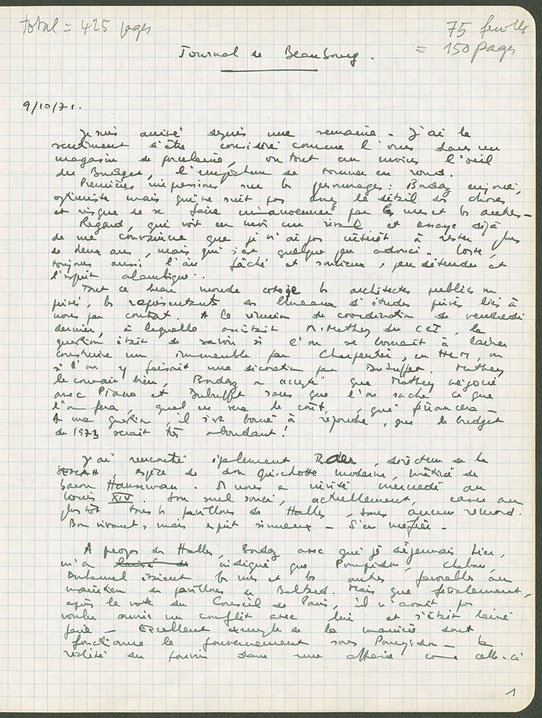 total = 425 pages
75 feuilles
= 150 pages
Journal de Beaubourg.
9/10/71.
Je suis arrivé depuis une semaine - J'ai le
sentiment d'être considéré comme l'ours dans un
magasin de porcelaine, ou tout au moins l'œil
du Budget, l'empêcheur de tourner en rond.
Premières impressions sur les personnages : Bordaz enjoué,
optimiste mais qui ne suit pas assez le détail des choses
et risque de se faire manœuvrer par les uns et les autres -
Regard, qui voit en moi un rival et essaye déjà
de me convaincre que je n'ai pas intérêt à rester plus
de deux ans, mais qui s'est quelque peu adouci -
toujours aussi l'air fâché et soucieux, peu détendu et
l'esprit
Tout ce beau monde cotoie les architectes publics ou
privés, les représentants des bureaux d'études privés liés à
nous par contrat. A la réunion de coordination de vendredi
dernier, à laquelle assistait M. Mathey du CCI, la
question était de savoir si l'on se bornait à laisser
construire un immeuble par Charpentier, en HLM, ou
si l'on y faisait une décoration par Dubuffet. Mathey
le connait bien, Bordaz a accepté que Mathey négocie
avec Piano et Dubuffet sans que l'on sache ce que
l'on fera, quel en sera le coût, qui financera -
A ma question, il s'est borné à répondre, que le budget
de 1973 serait abondant !
J'ai rencontré également directeur de la
espèce de don quichotte moderne, mâtiné de
baron Haussmann. Il nous a invité mercredi au
Louis XIV. Son seul souci, actuellement, casser au
plus tôt tous les pavillons des Halles, sans aucun remord.
Bon vivant, mais esprit sinueux - S'en méfier -
A propos des Halles, Bordaz avec qui je déjeunais hier,
m'a indiqué que Pompidou, Chaban,
Duhamel étaient les uns et les autres favorables au
maintien des pavillons de Baltard. Mais que finalement,
après le vote du Conseil de Paris, il n'avait pas
voulu ouvrir un conflit avec lui et s'était laissé
faire - Excellent exemple de la manière dont
fonctionne le gouvernement sous Pompidou - la
réalité du pouvoir dans une affaire comme celle-ci
1